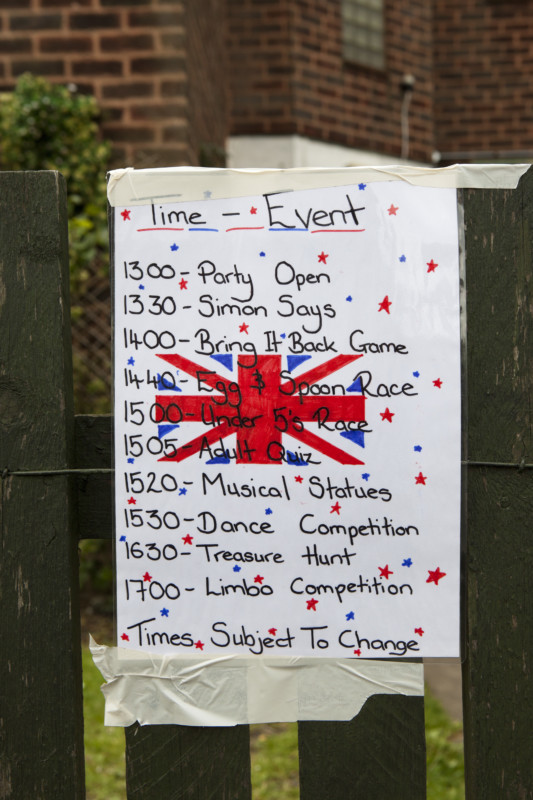 Time - Event
1300 - Party Open
1330 - Simon Says
1400 - Bring It Back Game
1440 - Egg & Spoon Race
1500 - Under 5's Race
1505 - Adult Quiz
1520 - Musical Statues
1530 - Dance Competition
1630 - Treasure Hunt
1700 - Limbo Competition
Times Subject To Change